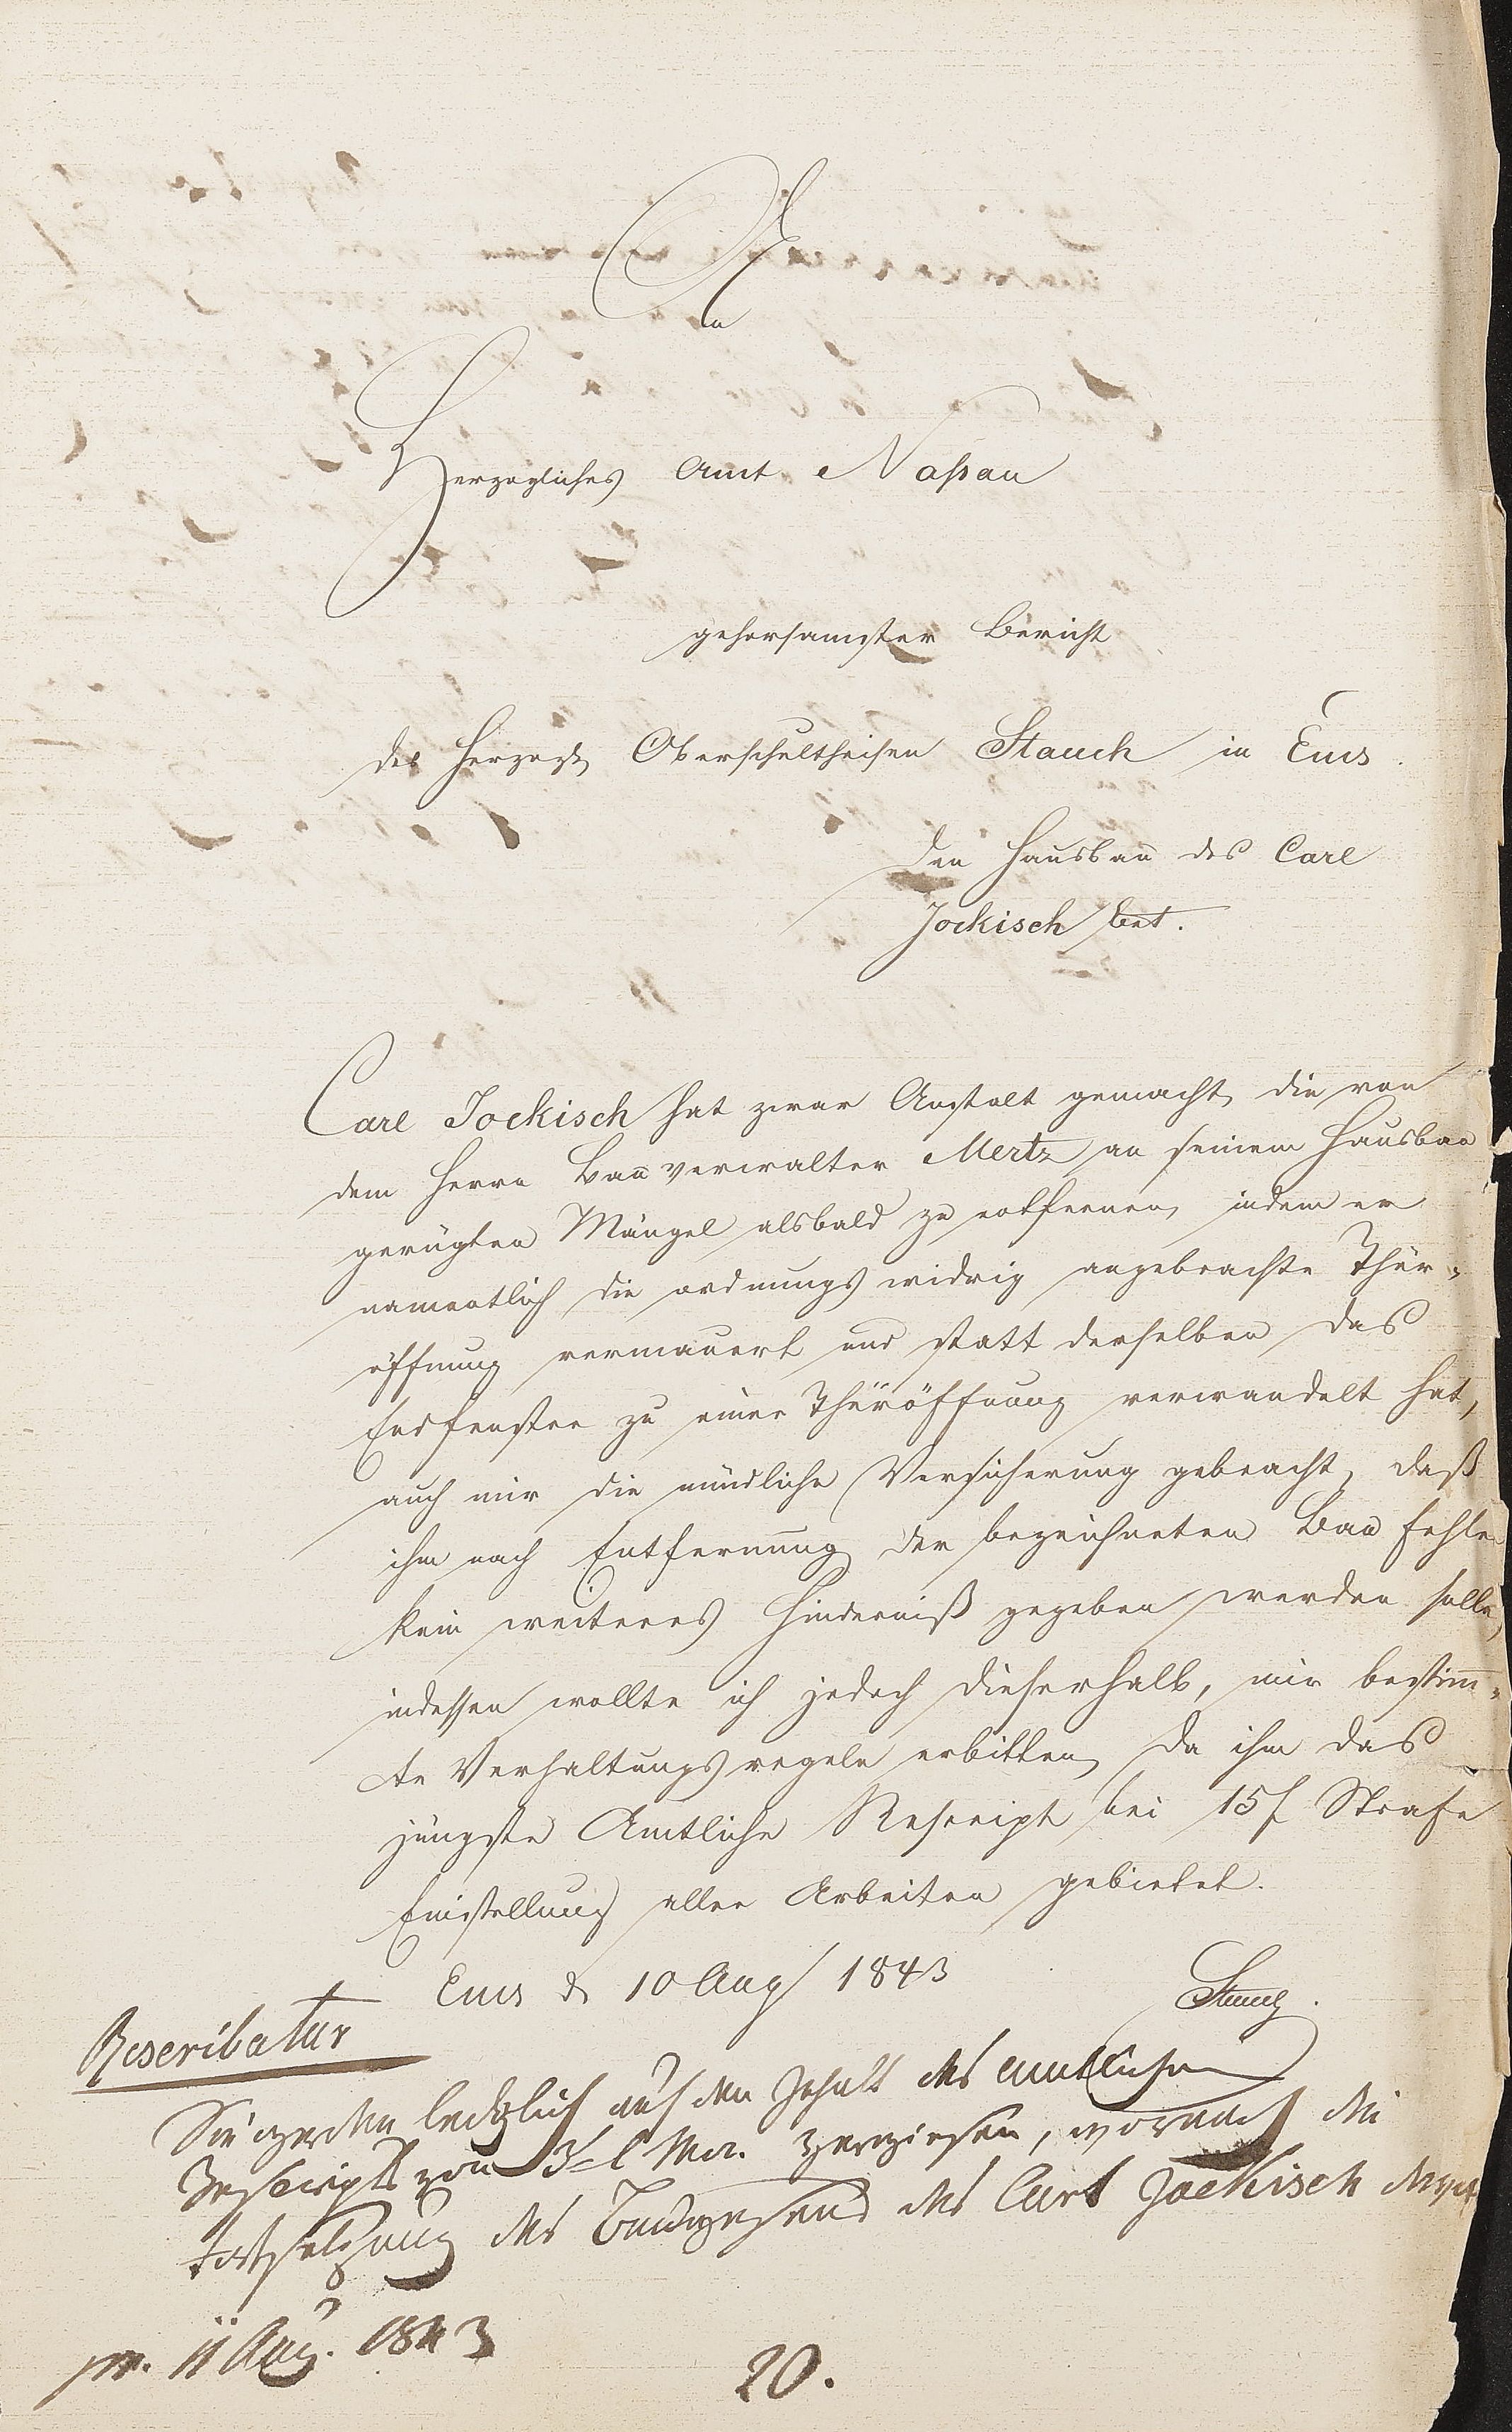 An
Herzogliches Amt Naßau
gehorsamster Bericht
des Herzogl. Oberschultheisen Stauch in Ems.
den Hausbau des Carl
Jockisch bet.
Carl Jockisch hat zwar Anstalt gemacht, die von
dem Herrn Bauverwalter Mertz an seinem Hausbau
gerügten Mängel alsbald zu entfernen, indem er
namentlich die ordnungswidrig angebrachte Thür-
öffnung vermauert und statt derselben das
Endfenster zu einer Thüröffnung verwandelt hat,
auch mir die mündliche Versicherung gebracht, daß
ihm nach Entfernung der bezeichneten Bau Fehler
kein weiteres Hinderniß gegeben werden solle,
indessen wollte ich jedoch dieserhalb, mir bestim̅-
te Verhaltungsregeln erbitten, da ihm das
jüngste Amtliche Rescript bei 15f Strafe
Einstellung aller Arbeiten gebietet.
Ems d. 10 Aug 1843
Stauch.
Rescribatur
Sie werden lediglich auf den Inhalt des amtlichen
Rescripts vom verwiesen, wornach die
Fortsetzung des Bauwesens des Carl Jockisch
pr. 11 Aug. 1843
20.